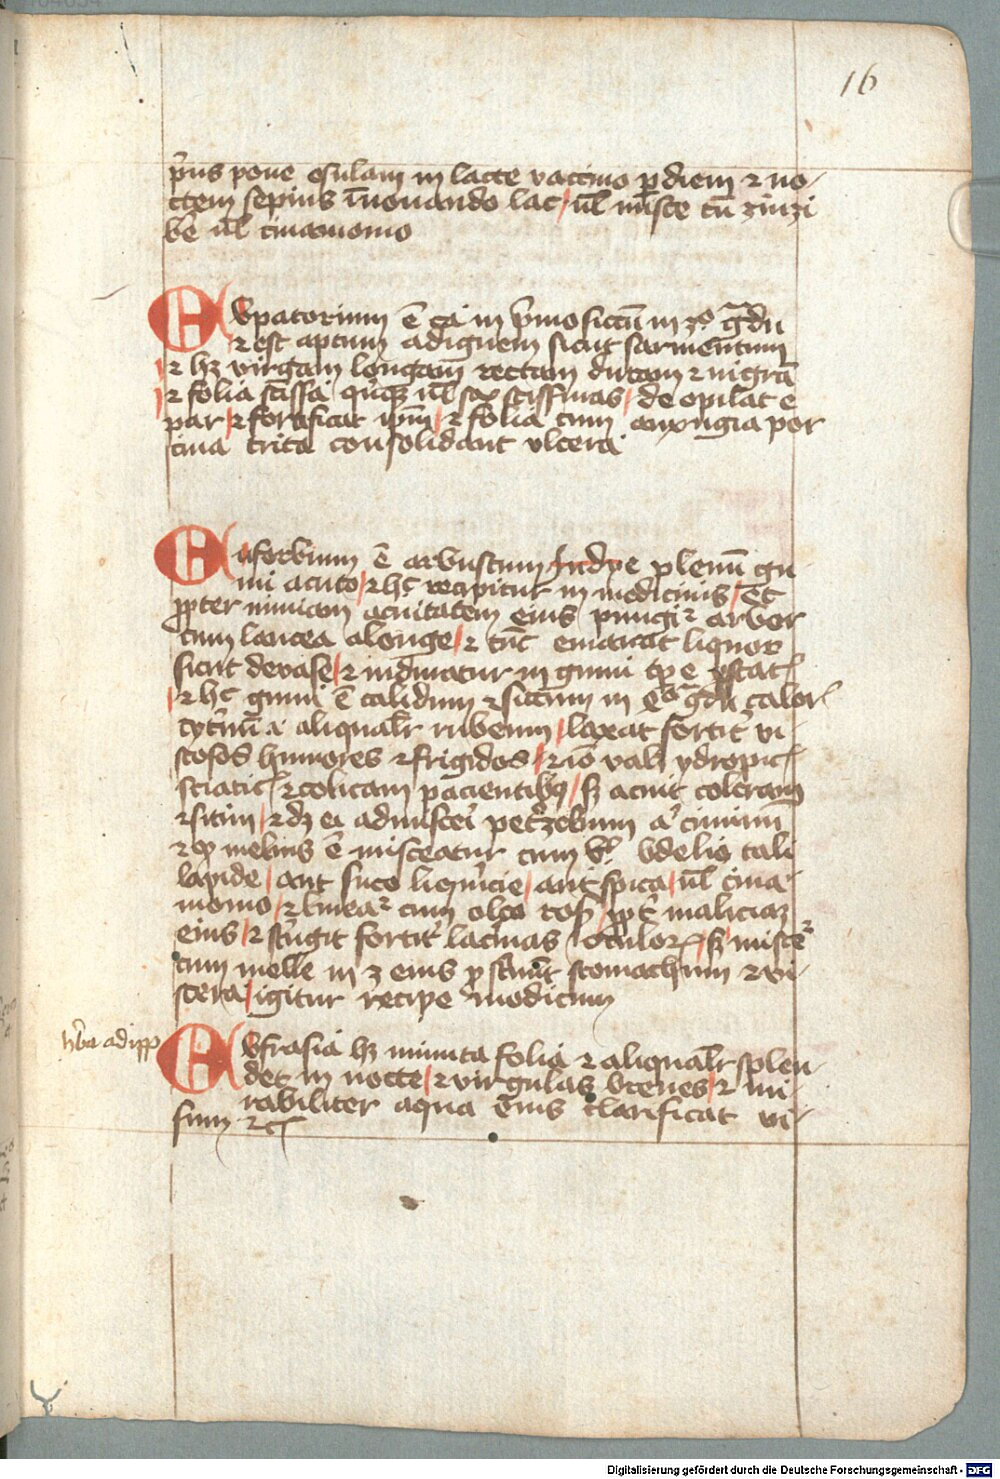 16
p̄us pone esulam in lacte vaccino ꝑ diem ⁊ no-
ctem sepius īnouando lac / ul̄ misce cū zinzi
be᷑ ul̄ cinamomo
Evpatorium ē ca᷑ in p̄mo siccū in 2º gͣdu
⁊ est aptum ad ignem sicut sarmentum
⁊ hꝫ virgam longam rectam duram ⁊ nigrā
⁊ folia scissa qͥnqꝫ ul̄ sex scissuras / de opilat e
par / ⁊ fortificat ip̄m / ⁊ folia cum auxugia por
cina trita consolidant vlcera
Euforbium ē arbustum Indye plenū gu
mi acuto / ⁊ hͦ recipitur in medicinis / Et
ꝓpter nimiam acuitatem eius pungiᷣ arbor
cum lancea alonge / ⁊ tūc emanat liquor
sicut de vase / ⁊ induratur in gumi
⁊ hͦ gumi ē calidum ⁊ siccum in gͣdu calor
citrinū aliqualr̄ rubeum / laxat fortit᷑ vi
scosos humores ⁊ frigidos / ⁊ iō val ydropic
sciatic ⁊ colicam pacientibꝰ / sꝫ acuit coleram
⁊ sitim / ⁊ dꝫ ei admisceri
⁊ qͦ melius ē misceatur cum bdelio tali
lapide / aut suco liquiricie / aut spica / ul̄ cina
momo / ⁊ lineaᷣ cum oleo ros̄ ꝓpt᷑ maliciaꝫ
eius / ⁊ st᷑ingit fortit᷑ lac᷑mas oculoꝝ / sꝫ misceᷣ
cum melle in stomachum ⁊ vi-
scera / igitur recipe modicum
h᷑ba ad ipp
Evfrasia hꝫ minuta folia ⁊ aliqualr̄ splen-
det in nocte / ⁊ virgulas breues / ⁊ mi-
rabiliter aqua eius clarificat vi-
sum ⁊c̄
Digitalisierung gefördert durch die Deutsche Forschungsgemeinschaft - DFG